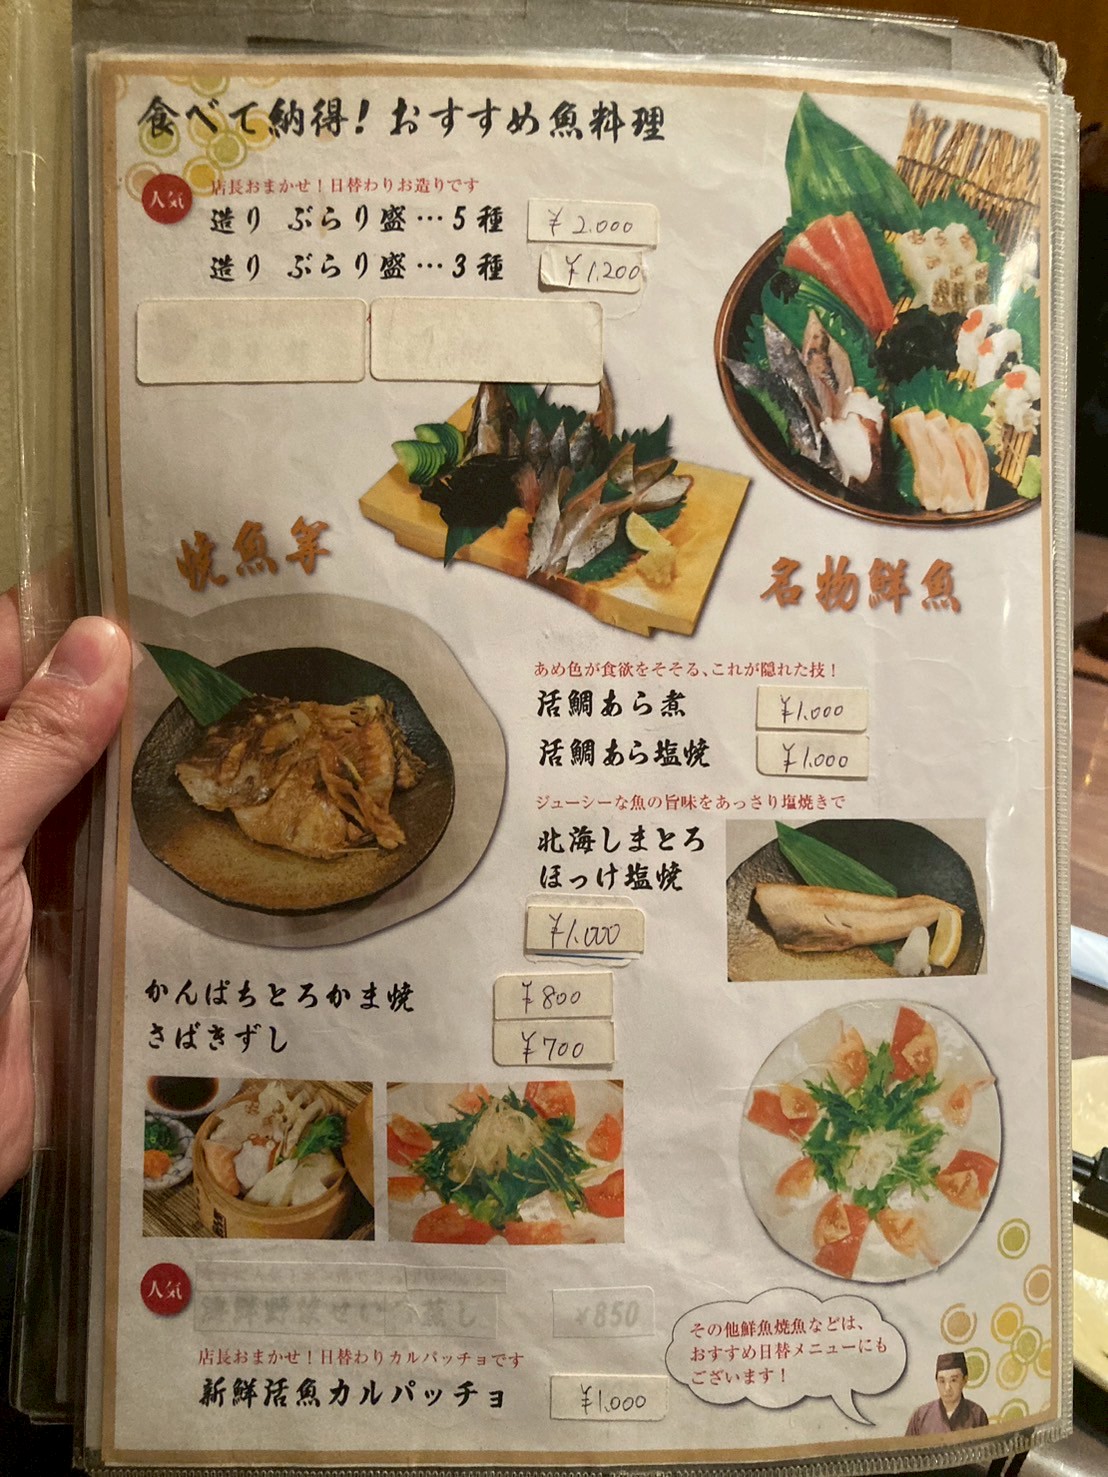 食べて納得！おすすめ魚料理
人気
店長おまかせ！日替わりお造りです
造り ぶらり盛…5種 ¥2.000
造り ぶらり盛…3種 ¥1.200
焼魚等
名物鮮魚
あめ色が食欲をそそる、これが隠れた技！
活鯛あら煮 ¥1.000
活鯛あら塩焼 ¥1.000
ジューシーな魚の旨味をあっさり塩焼きで
北海しまとろ
ほっけ塩焼
¥1.000
かんぱちとろかま焼 ¥800
さばきずし ¥700
人気
¥850
店長おまかせ！日替わりカルパッチョです
新鮮活魚カルパッチョ ¥1.000
その他鮮魚焼魚などは、
おすすめ日替メニューにも
ございます！